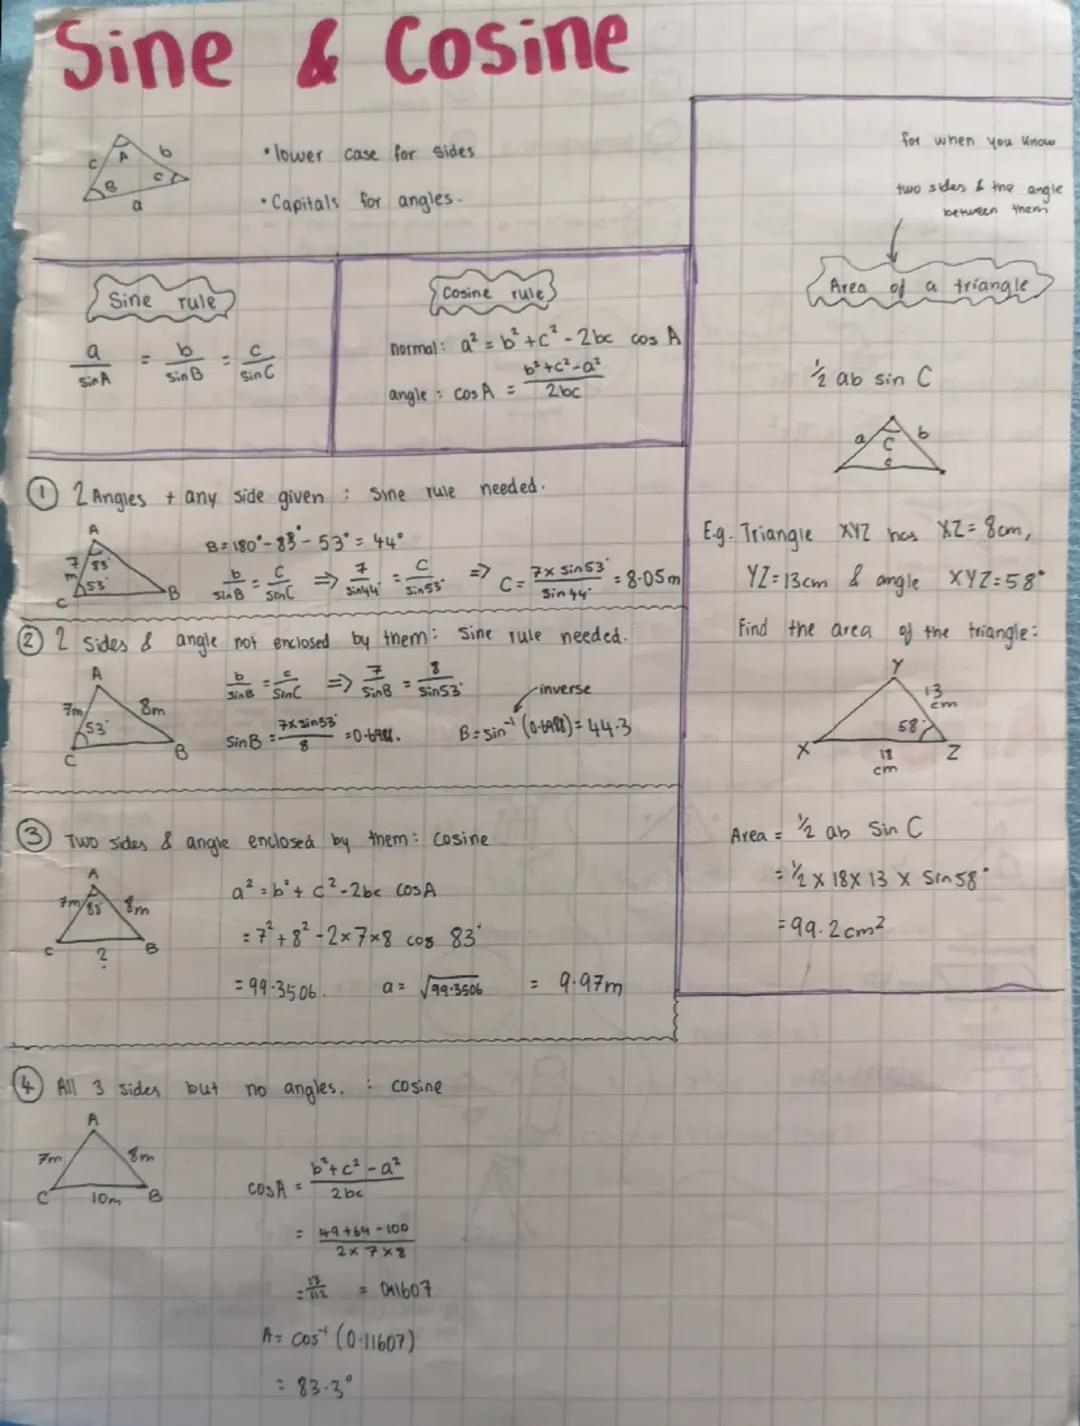 Sine & Cosine
A
b
c
B
C
a
• lower case for sides
• Capitals for angles.
Sine rule
a/sinA = b/sinB = c/sinC
Cosine rule
normal: a² = b² + c² - 2bc cos A
angle: cos A = b² + c² - a² / 2bc
① 2 Angles + any side given : Sine rule needed.
A
7m
83°
53°
C
B
B = 180° - 83° - 53° = 44°
b/sinB = c/sinC ⇒ 7/sin44° = c/sin53° ⇒ C = 7 x sin53°/sin44° = 8.05m
② 2 sides & angle not enclosed by them: Sine rule needed.
A
7m
8m
53°
C
B
b/sinB = c/sinC ⇒ 7/sinB = 8/sin53°
inverse
sinB = 7x sin53°/8 = 0.6988.
B = sin⁻¹ (0.6988) = 44.3
③ Two sides & angle enclosed by them: cosine
A
7m
83°
8m
C
B
?
a² = b² + c² - 2bc cosA
= 7² + 8² - 2x7x8 cos 83°
= 99.3506.
a = √99.3506 = 9.97m
④ All 3 sides but no angles. : cosine
A
7m
8m
C
10m
B
cosA = b² + c² - a² / 2bc
= 49 + 64 - 100 / 2 x 7 x 8
= 13/112 = 0.11607
A = cos⁻¹ (0.11607)
= 83.3°
for when you know
two sides & the angle
between them
Area of a triangle
½ ab sin C
a
b
C
c
E.g. Triangle XYZ has XZ = 8cm,
YZ = 13cm & angle XYZ = 58°
Find the area of the triangle:
Y
13
cm
58°
X
18
cm
Z
Area = ½ ab Sin C
= ½ x 18 x 13 x Sin 58°
= 99.2cm²